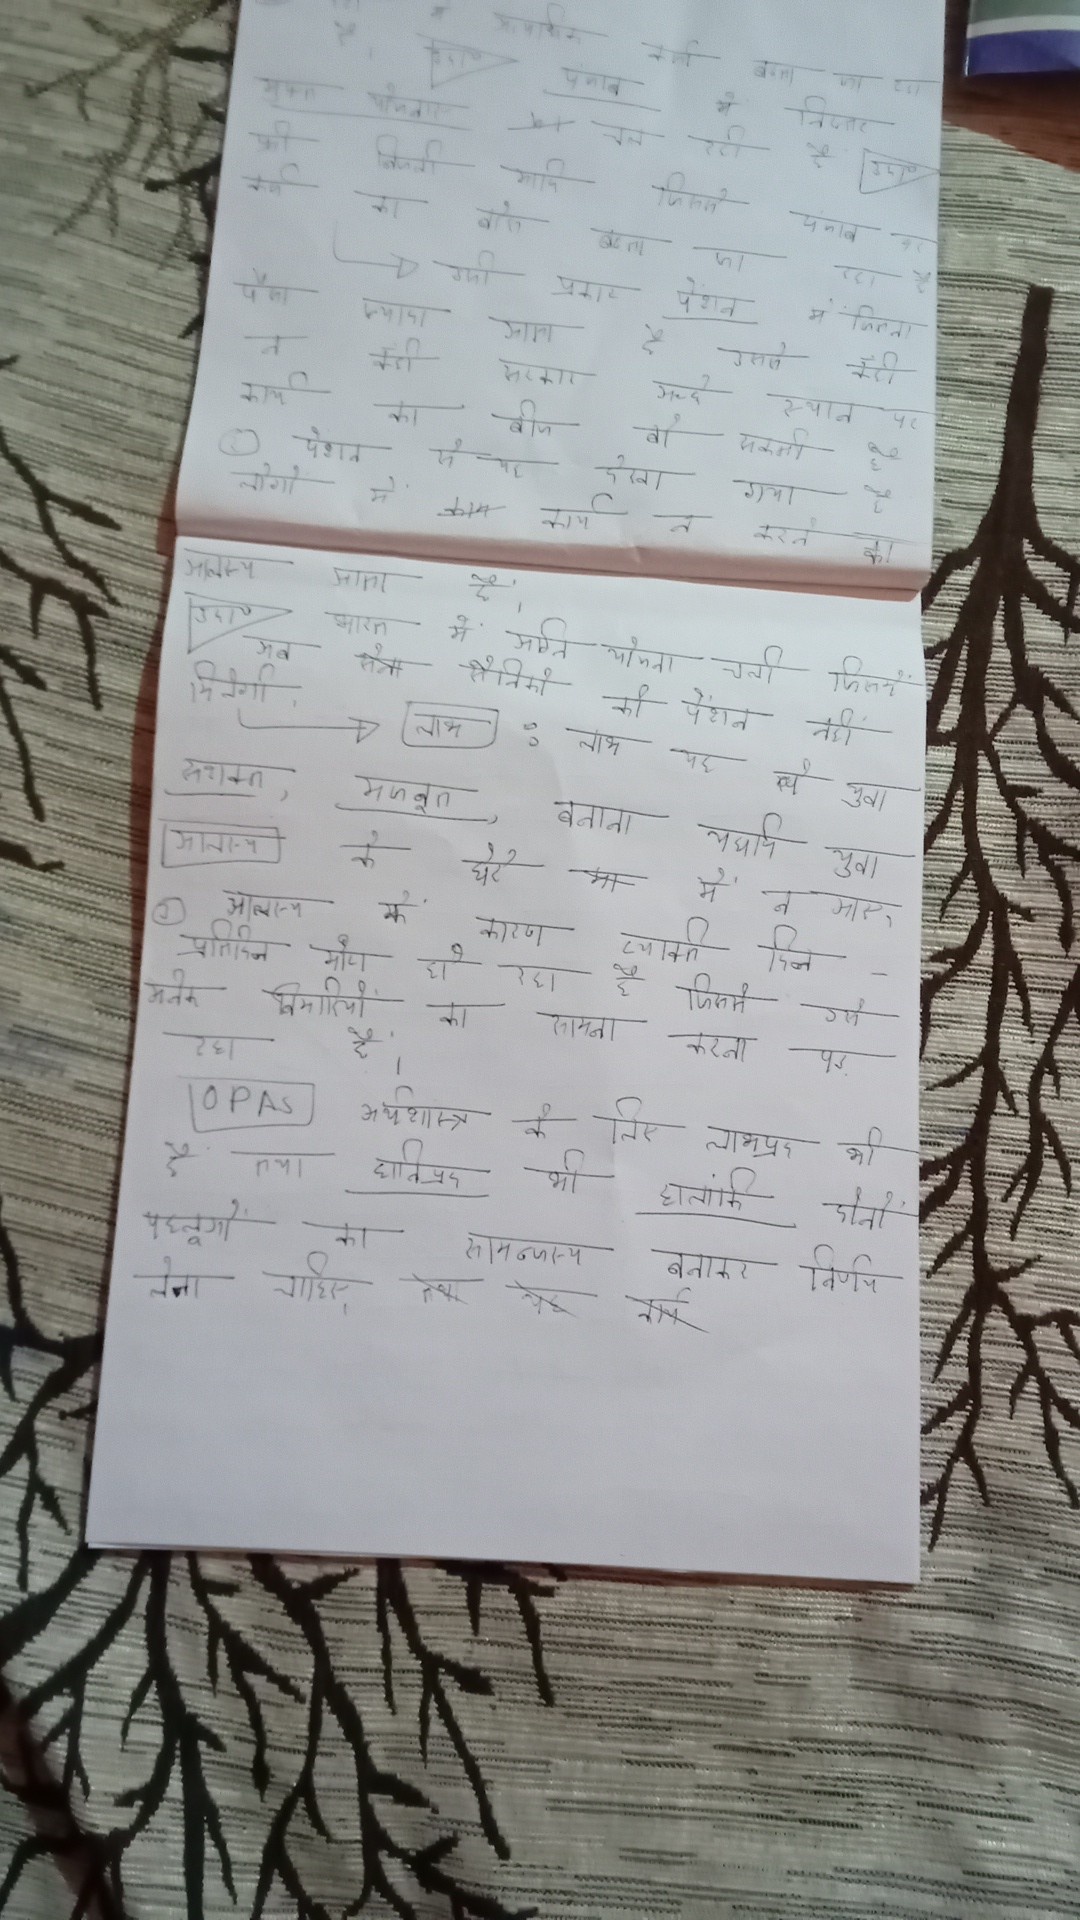 कर्जा बढ़ता जा रहा
है। उदा० पंजाब में निरन्तर
मुफ्त योजनाएं चल रही है उदा०
फ्री बिजली आदि जिससे पंजाब पर
कर्ज का बोझ बढ़ता जा रहा है
उसी प्रकार पेंशन में जितना
पैसा ज्यादा जाता है उससे कहीं
न कहीं सरकार अच्छे स्थान पर
कार्य का बीज बो सकती है
पेंशन से यह देखा गया है
लोगो में काम कार्य न करने का
आलस्य आता है।
उदा० भारत में अग्नि योजना चली जिसमें
अब सेना सैनिको की पेंशन नहीं
मिलेगी।
लाभ : लाभ यह है युवा
सशक्त, मजबूत, बनाना यद्यपि युवा
आलस्य के घेरे में न आए,
आलस्य के कारण व्यक्ति दिन -
प्रतिदिन मोटा हो रहा है जिससे उसे
अनेक बिमारियों का सामना करना पड़
रहा है।
OPAS अर्थशास्त्र के लिए लाभप्रद भी
है तथा हानिप्रद भी हालांकि दोनों
पहलूओं का सामन्जस्य बनाकर निर्णय
लेना चाहिए, तथा यह कार्य